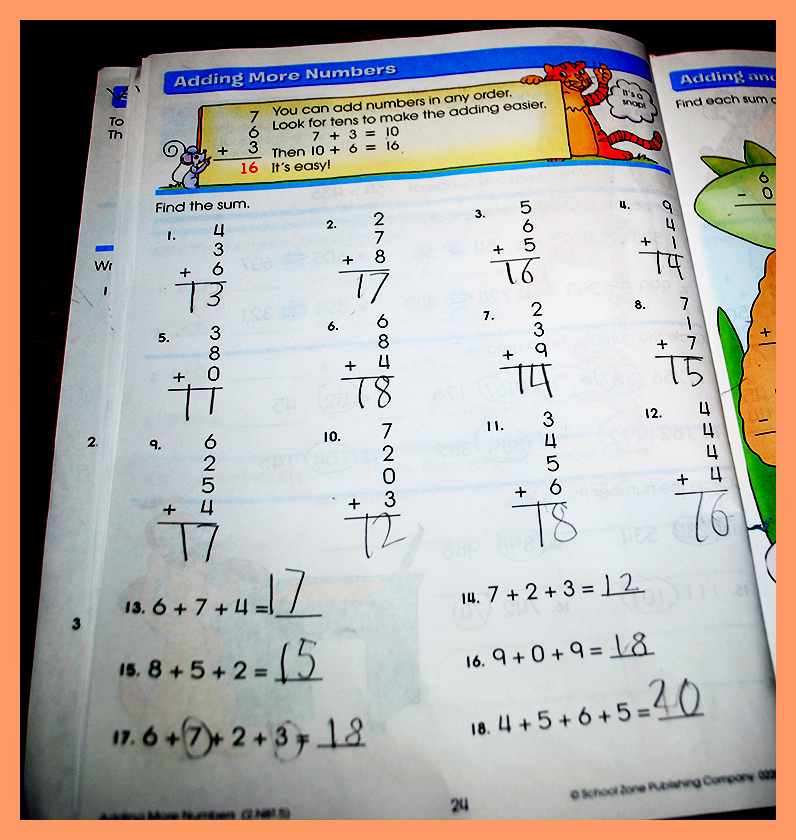 Adding More Numbers
7
6
+ 3
16
You can add numbers in any order.
Look for tens to make the adding easier.
7 + 3 = 10
Then 10 + 6 = 16.
It's easy!
It's a
snap!
Find the sum.
1. 4
3
+ 6
13
2. 2
7
+ 8
17
3. 5
6
+ 5
16
4. 9
4
+ 1
14
5. 3
8
+ 0
11
6. 6
8
+ 4
18
7. 2
3
+ 9
14
8. 7
1
+ 7
15
9. 6
2
5
+ 4
17
10. 7
2
0
+ 3
12
11. 3
4
5
+ 6
18
12. 4
4
4
+ 4
16
13. 6 + 7 + 4 = 17
14. 7 + 2 + 3 = 12
15. 8 + 5 + 2 = 15
16. 9 + 0 + 9 = 18
17. 6 + 7 + 2 + 3 = 18
18. 4 + 5 + 6 + 5 = 20
Adding More Numbers (2.NBT.5)
24
© School Zone Publishing Company
To
Th
Wr
1
2.
3
Adding and
Find each sum
6
- 0
+
-